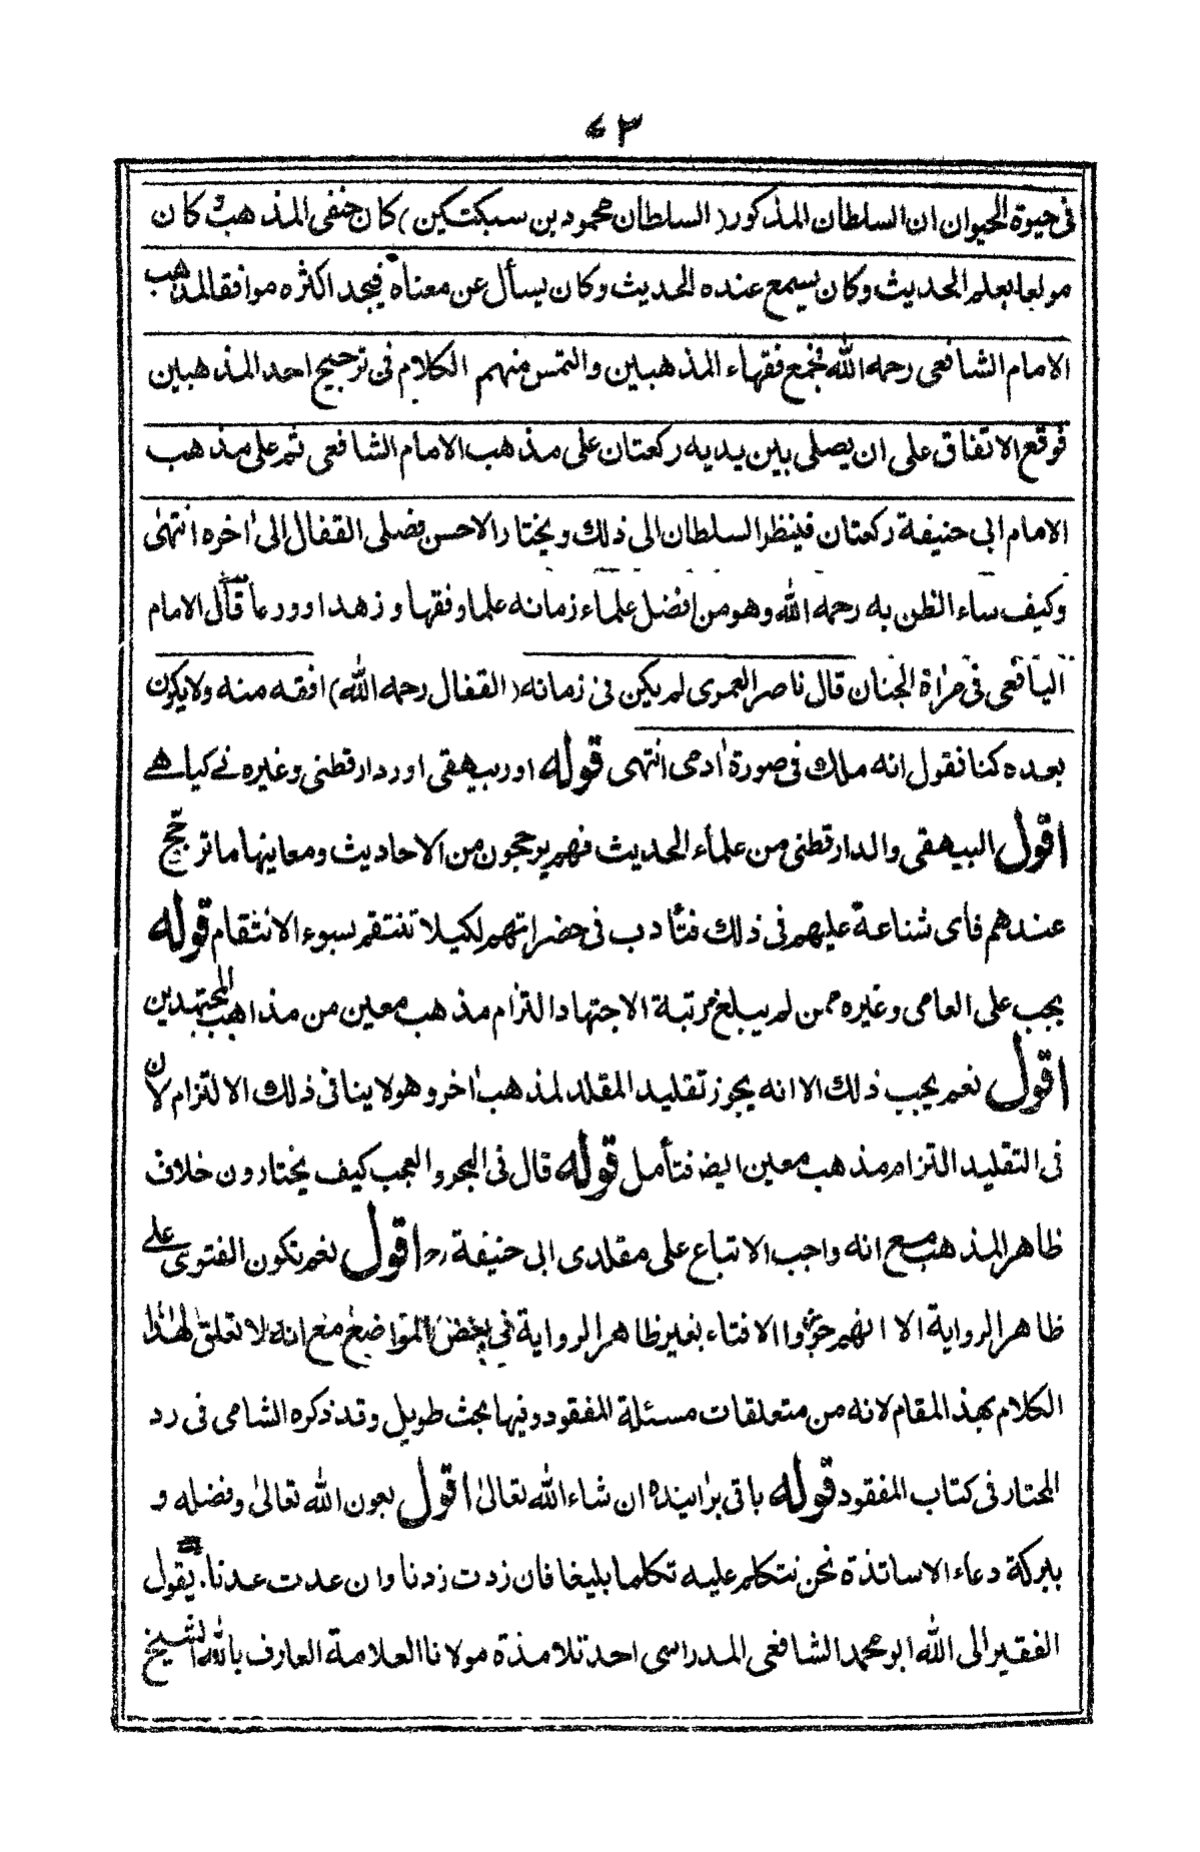 ٧٣
فى حيوة الحيوان ان السلطان المذكور (السلطان محمود بن سبكتكين) كان حنفى المذهب كان
مولعا بعلم الحديث وكان يسمع عنده الحديث وكان يسأل عن معناه فيجد اكثره موافقا لمذهب
الامام الشافعى رحمه الله فجمع فقهاء المذهبين والتمس منهم الكلام فى ترجيح احد المذهبين
فوقع الاتفاق على ان يصلى بين يديه ركعتان على مذهب الامام الشافعى ثم على مذهب
الامام ابى حنيفة ركعتان فينظر السلطان الى ذلك ويختار الاحسن فصلى القفال الى اٰخره انتهى
وكيف ساء الظن به رحمه الله وهو من افضل علماء زمانه علما وفقها وزهدا وورعا قال الامام
اليافعى فى مراة الجنان قال ناصر العمرى لم يكن فى زمانه (القفال رحمه الله) افقه منه ولا يكون
بعده كنا نقول انه ملك فى صورة اٰدمى انتهى قوله اور بيهقى اور دارقطنى وغيره نے کیا ھے
اقول البيهقى والدارقطنى من علماء الحديث فهم يرجحون من الاحاديث ومعاينها ما ترجح
عندهم فاى شناعة عليهم فى ذلك فتأدب فى حضراتهم لكيلا تنتقم بسوء الانتقام قوله
يجب على العامى وغيره ممن لم يبلغ مرتبة الاجتهاد التزام مذهب معين من مذاهب المجتهدين
اقول نعم يجب ذلك الا انه يجوز تقليد المقلد لمذهب اٰخر وهو لا ينافى ذلك الالتزام لان
فى التقليد التزام مذهب معين ايضا فتأمل قوله قال فى البحر والعجب كيف يختارون خلاف
ظاهر المذهب مع انه واجب الاتباع على مقلدى ابى حنيفة رح اقول نعم تكون الفتوى على
ظاهر الرواية الا انهم جوزوا الافتاء بغير ظاهر الرواية فى بعض المواضع مع انه لا تعلق لهٰذا
الكلام بهذ المقام لانه من متعلقات مسئلة المفقود وفيها بحث طويل وقد ذكره الشامى فى رد
المحتار فى كتاب المفقود قوله باقى براٰینده ان شاء الله تعالىٰ اقول بعون الله تعالىٰ وفضله و
ببركة دعاء الاساتذة نحن نتكلم عليه تكلما بليغا فان زدت زدنا وان عدت عدنا. يقول
الفقير الى الله ابو محمد الشافعى المدراسى احد تلامذة مولانا العلامة العارف بالله الشيخ